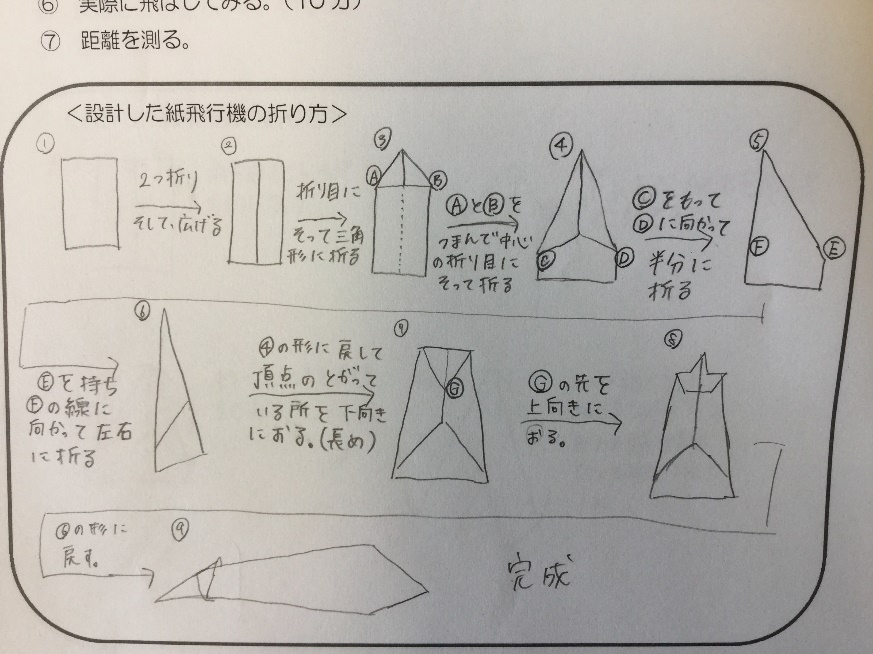 ⑥ 実際に飛ばしてみる。(10分)
⑦ 距離を測る。
<設計した紙飛行機の折り方>
①
2つ折り
そして、広げる
②
折り目に
そって三角
形に折る
③
Ⓐ
Ⓑ
ⒶとⒷを
つまんで中心
の折り目に
そって折る
④
Ⓒ
Ⓓ
Ⓒをもって
Ⓓに向かって
半分に
折る
5
Ⓕ
Ⓔ
Ⓔを持ち
Ⓕの線に
向かって左右
に折る
⑥
④の形に戻して
頂点のとがって
いる所を下向き
におる。(長め)
Ⓖ
Ⓖの先を
上向きに
おる。
⑧
の形に
戻す。
⑨
完成